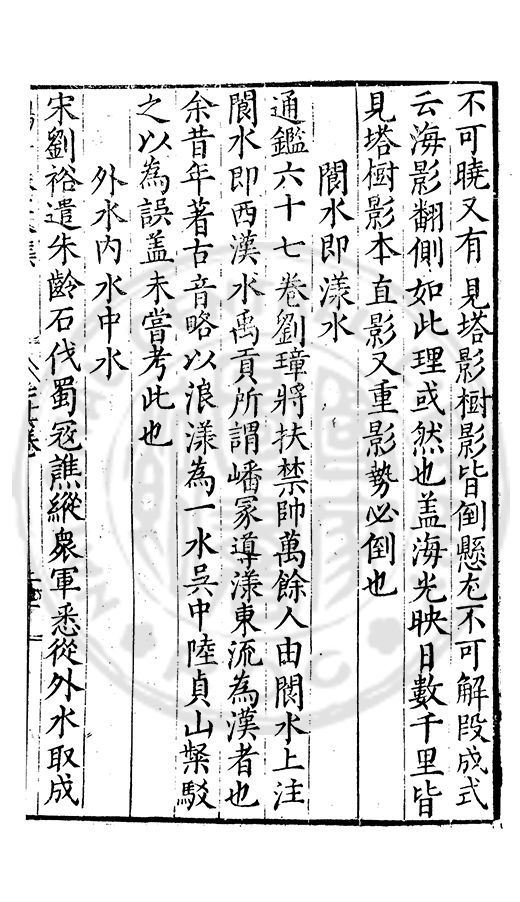 不可曉又有見塔影樹影皆倒懸尤不可解段成式
云海影翻側如此理或然也盖海光映日數千里皆
見塔樹影本直影又重影勢必倒也
閬水即漾水
通鑑六十七卷劉璋將扶禁帥萬餘人由閬水上注
閬水即西漢水禹貢所謂嶓冢導漾東流為漢者也
余昔年著古音略以浪漾為一水吳中陸貞山粲駁
之以為誤盖未嘗考此也
外水內水中水
宋劉裕遣朱齡石伐蜀冦譙縱衆軍悉從外水取成